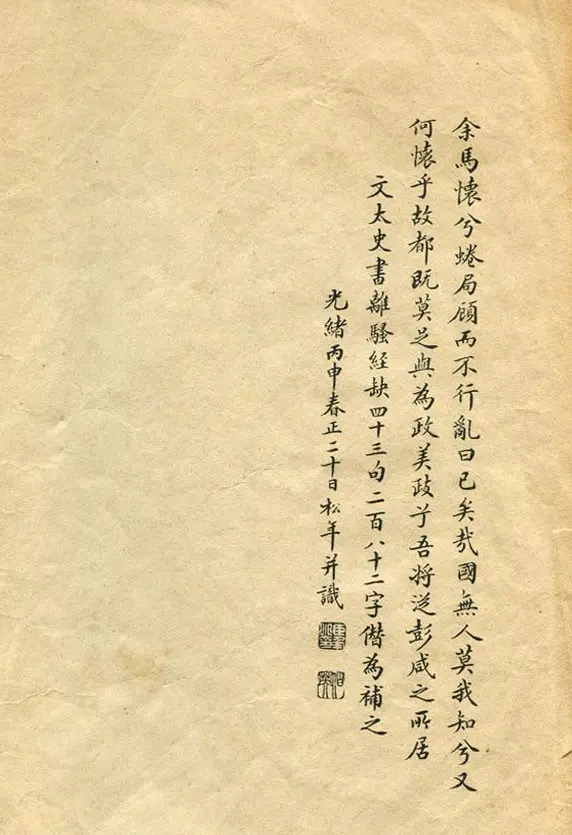 余馬懷兮蜷局顧而不行亂曰已矣哉國無人莫我知兮又
何懷乎故都既莫足與為政美政兮吾將從彭咸之所居
文太史書離騷經缺四十三句二百八十二字僭為補之
光緒丙申春正二十日松年并識